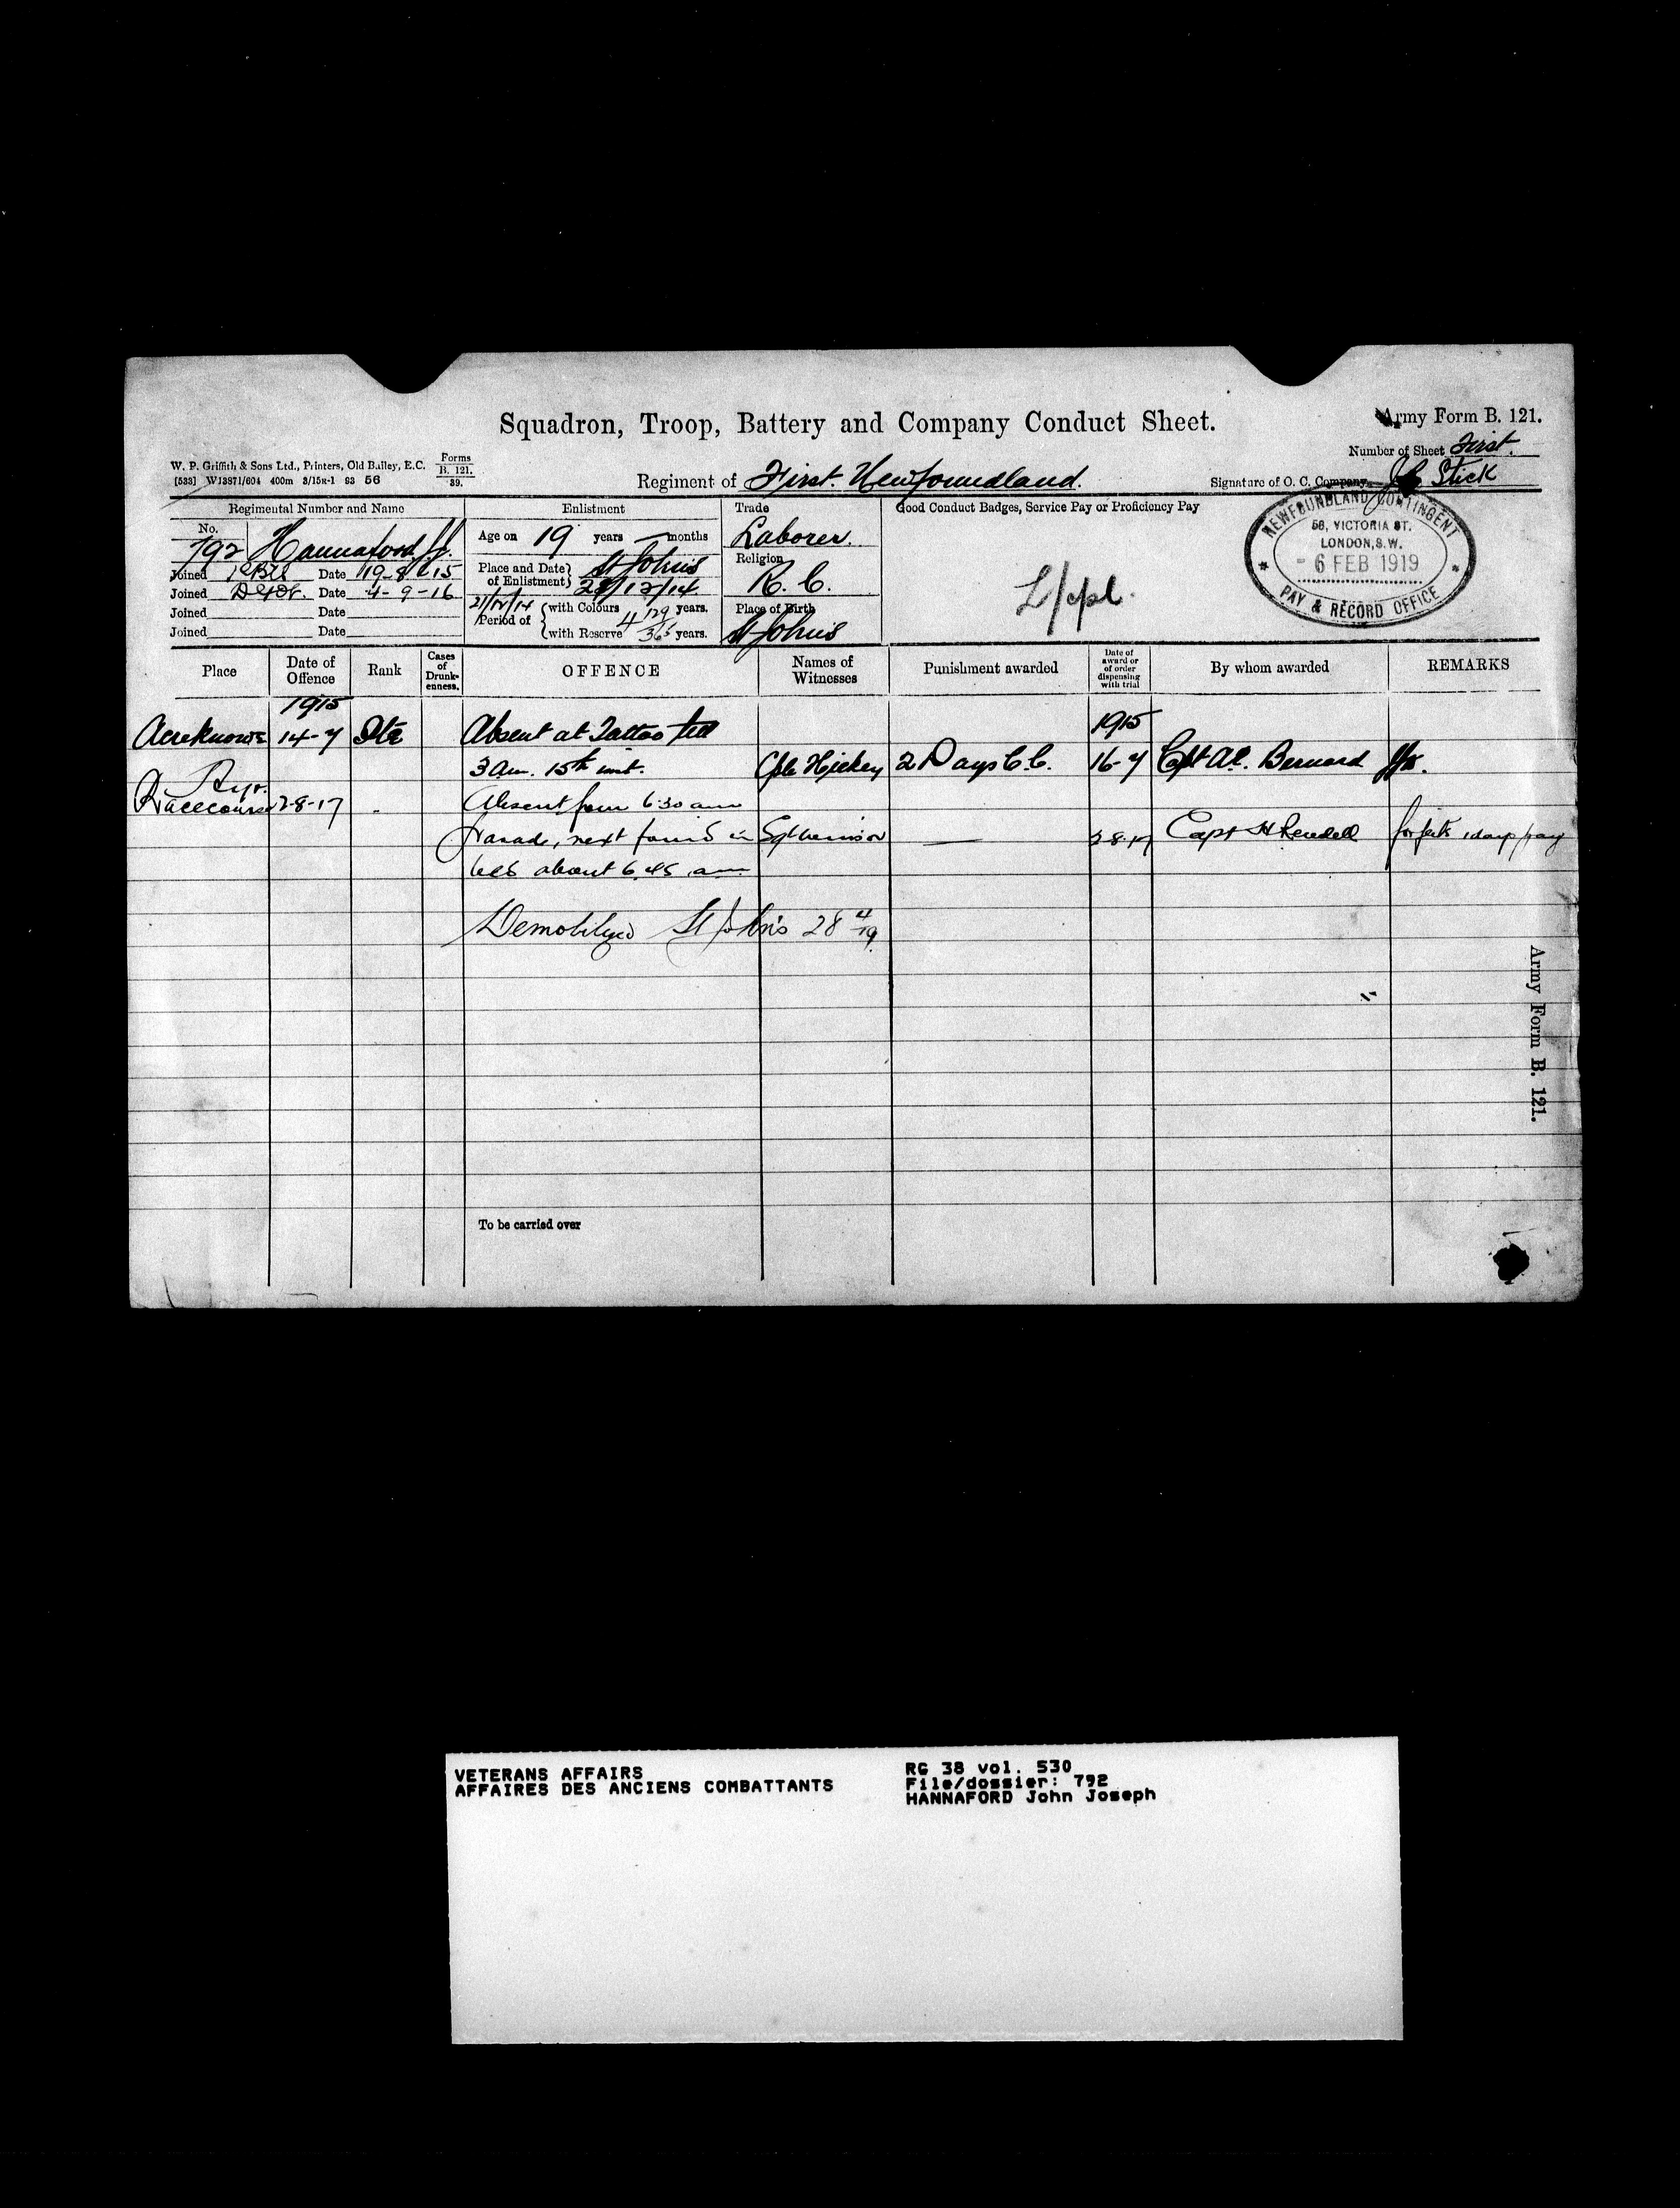 Squadron, Troop, Battery and Company Conduct Sheet.
Army Form B. 121.
Number of Sheet First.
W. P. Griffith & Sons Ltd., Printers, Old Bailey, E.C. Forms B. 121. 39.
[533] W13871/604 400m 3/15 93 56
Regiment of First Newfoundland.
Signature of O. C. Company Stick
NEWFOUNDLAND CONTINGENT
58, VICTORIA ST.
LONDON, S.W.
- 6 FEB 1919
PAY & RECORD OFFICE
Regimental Number and Name
No.
792 Hannaford J.J.
Joined Date 19-8-15
Joined Depot. Date 4-9-16
Joined Date
Joined Date
Enlistment
Age on 19 years — months
Place and Date of Enlistment St Johns
21/12/14
21/12/14
Period of with Colours 4 129/365 years.
with Reserve years.
Trade
Laborer.
Religion
R. C.
Place of Birth
St Johns
Good Conduct Badges, Service Pay or Proficiency Pay
L/cpl.
Place Date of Offence Rank Cases of Drunkenness. OFFENCE Names of Witnesses Punishment awarded Date of award or of order dispensing with trial By whom awarded REMARKS
1915 1915
Acreknowe 14-7 Pte Absent at Tattoo till
3 am. 15th inst. Cple Hickey 2 Days C.C. 16-7 Cpt Al. Bernard
Ayr.
Racecourse 2-8-17 Absent from 6.30 am
Parade, next found in — 2-8-17 Capt H Rendell forfeits 1 days pay
bed about 6.45 am
Demobilized St John's 28 4/19
To be carried over
Army Form B. 121.
VETERANS AFFAIRS
AFFAIRES DES ANCIENS COMBATTANTS
RG 38 vol. 530
File/dossier: 792
HANNAFORD John Joseph